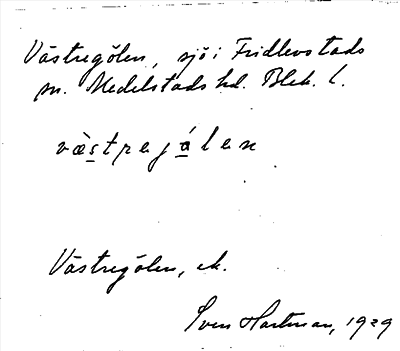 Västregölen, sjö i Fridlevstads
sn. Medelstads hd. Blek. l.
væ̀strejálen
Västregölen, ek.
Sven Hartman, 1929